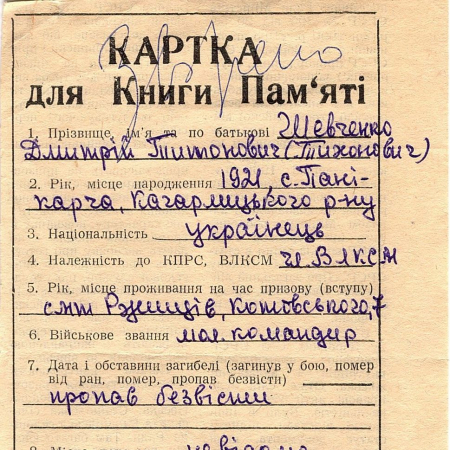 КАРТКА
для Книги Пам‘яті
1. Прізвище, ім'я та по батькові Шевченко
Дмитрій Титонович (Тихонович)
2. Рік, місце народження 1921, с. Пані-
карча, Кагарлицького р-ну
3. Національність українець
4. Належність до КПРС, ВЛКСМ чл. ВЛКСМ
5. Рік, місце проживання на час призову (вступу)
смт Ржищів, Котовського, 7
6. Військове звання мол. командир
7. Дата і обставини загибелі (загинув у бою, помер
від ран, помер, пропав безвісти)
пропав безвісти